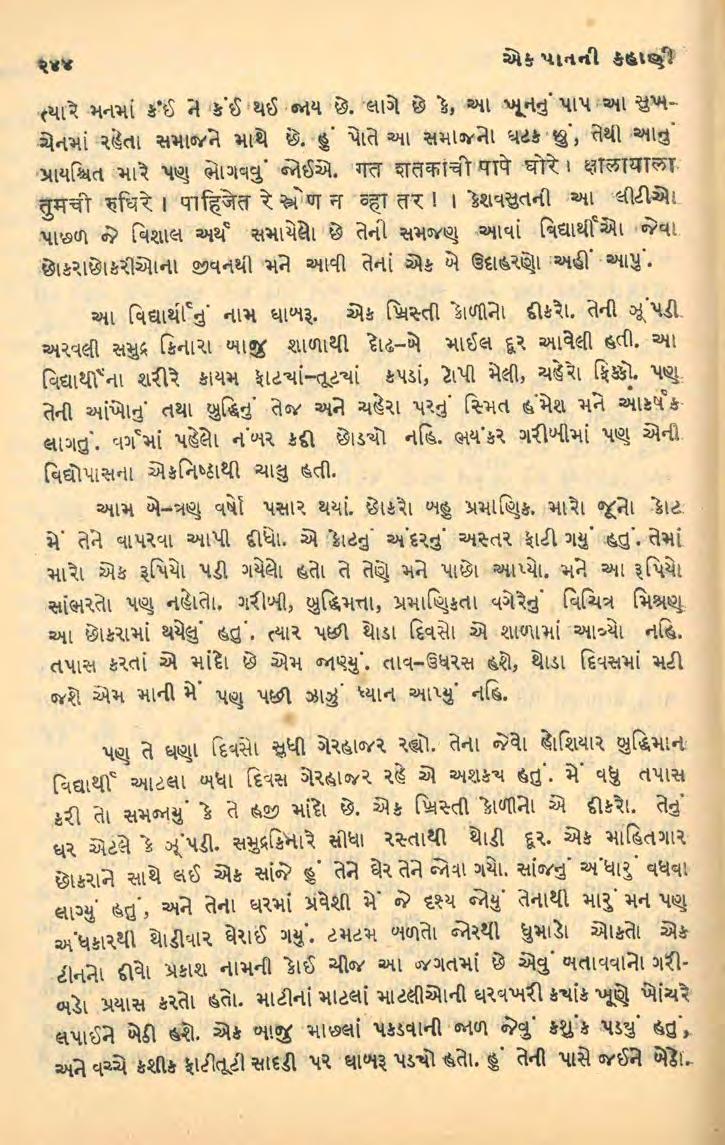 ૨૪૪
એક પાનની કહાણી
ત્યારે મનમાં કંઈ ને કંઈ થઈ જાય છે. લાગે છે કે, આ ખૂનનું પાપ આ સુખ-
ચેનમાં રહેતા સમાજને માથે છે. હું પોતે આ સમાજનો ઘટક છું, તેથી આનું
પ્રાયશ્ચિત મારે પણ ભોગવવું જોઈએ. गत शतकांची पापे घोरे । क्षालायाला
तुमची रुधिरे । पाहिजेत रे स्त्रैण न व्हा तर ! । કેશવસુતની આ લીટીઓ
પાછળ જે વિશાલ અર્થ સમાયેલો છે તેની સમજણ આવાં વિદ્યાર્થીઓ જેવા
છોકરાછોકરીઓના જીવનથી મને આવી તેનાં એક બે ઉદાહરણો અહીં આપું.
આ વિદ્યાર્થીનું નામ ઘાબરૂ. એક ખ્રિસ્તી કોળીનો દીકરો. તેની ઝૂંપડી
અરવલી સમુદ્ર કિનારા બાજુ શાળાથી દોઢ–બે માઈલ દૂર આવેલી હતી. આ
વિદ્યાર્થીના શરીરે કાયમ ફાટચાં–તૂટચાં કપડાં, ટોપી મેલી, ચહેરો ફિક્કો. પણ
તેની આંખોનું તથા બુદ્ધિનું તેજ અને ચહેરા પરનું સ્મિત હંમેશ મને આકર્ષક
લાગતું. વર્ગમાં પહેલો નંબર કદી છોડચો નહિ. ભયંકર ગરીબીમાં પણ એની
વિદ્યોપાસના એકનિષ્ઠાથી ચાલુ હતી.
આમ બે–ત્રણ વર્ષો પસાર થયાં. છોકરો બહુ પ્રમાણિક. મારો જૂનો કોટ
મેં તેને વાપરવા આપી દીધો. એ કોટનું અંદરનું અસ્તર ફાટી ગયું હતું. તેમાં
મારો એક રૂપિયો પડી ગયેલો હતો તે તેણે મને પાછો આપ્યો. મને આ રૂપિયો
સાંભરતો પણ નહોતો. ગરીબી, બુદ્ધિમત્તા, પ્રમાણિકતા વગેરેનું વિચિત્ર મિશ્રણ
આ છોકરામાં થયેલું હતું. ત્યાર પછી થોડા દિવસો એ શાળામાં આવ્યો નહિ.
તપાસ કરતાં એ માંદો છે એમ જાણ્યું. તાવ–ઉધરસ હશે, થોડા દિવસમાં મટી
જશે એમ માની મેં પણ પછી ઝાઝું ધ્યાન આપ્યું નહિ.
પણ તે ઘણા દિવસો સુધી ગેરહાજર રહ્યો. તેના જેવો હોશિયાર બુદ્ધિમાન
વિદ્યાર્થી આટલા બધા દિવસ ગેરહાજર રહે એ અશકય હતું. મેં વધુ તપાસ
કરી તો સમજાયું કે તે હજી માંદો છે. એક ખ્રિસ્તી કોળીનો એ દીકરો. તેનું
ઘર એટલે કે ઝૂંપડી. સમુદ્રકિનારે સીધા રસ્તાથી થોડી દૂર. એક માહિતગાર
છોકરાને સાથે લઈ એક સાંજે હું તેને ઘેર તેને જોવા ગયો. સાંજનું અંધારું વધવા
લાગ્યું હતું, અને તેના ઘરમાં પ્રવેશી મેં જે દૃશ્ય જોયું તેનાથી મારું મન પણ
અંધકારથી થોડીવાર ઘેરાઈ ગયું. ટમટમ બળતો જોરથી ધુમાડો ઓકતો એક
ટીનનો દીવો પ્રકાશ નામની કોઈ ચીજ આ જગતમાં છે એવું બતાવવાનો ગરી-
બડો પ્રયાસ કરતો હતો. માટીનાં માટલાં માટલીઓની ઘરવખરી કયાંક ખૂણે ખોંચરે
લપાઈને બેઠી હશે. એક બાજુ માછલાં પકડવાની જાળ જેવું કશુંક પડયું હતું,
અને વચ્ચે કશીક ફાટીતૂટી સાદડી પર ઘાબરૂ પડચો હતો. હું તેની પાસે જઈને બેઠો.